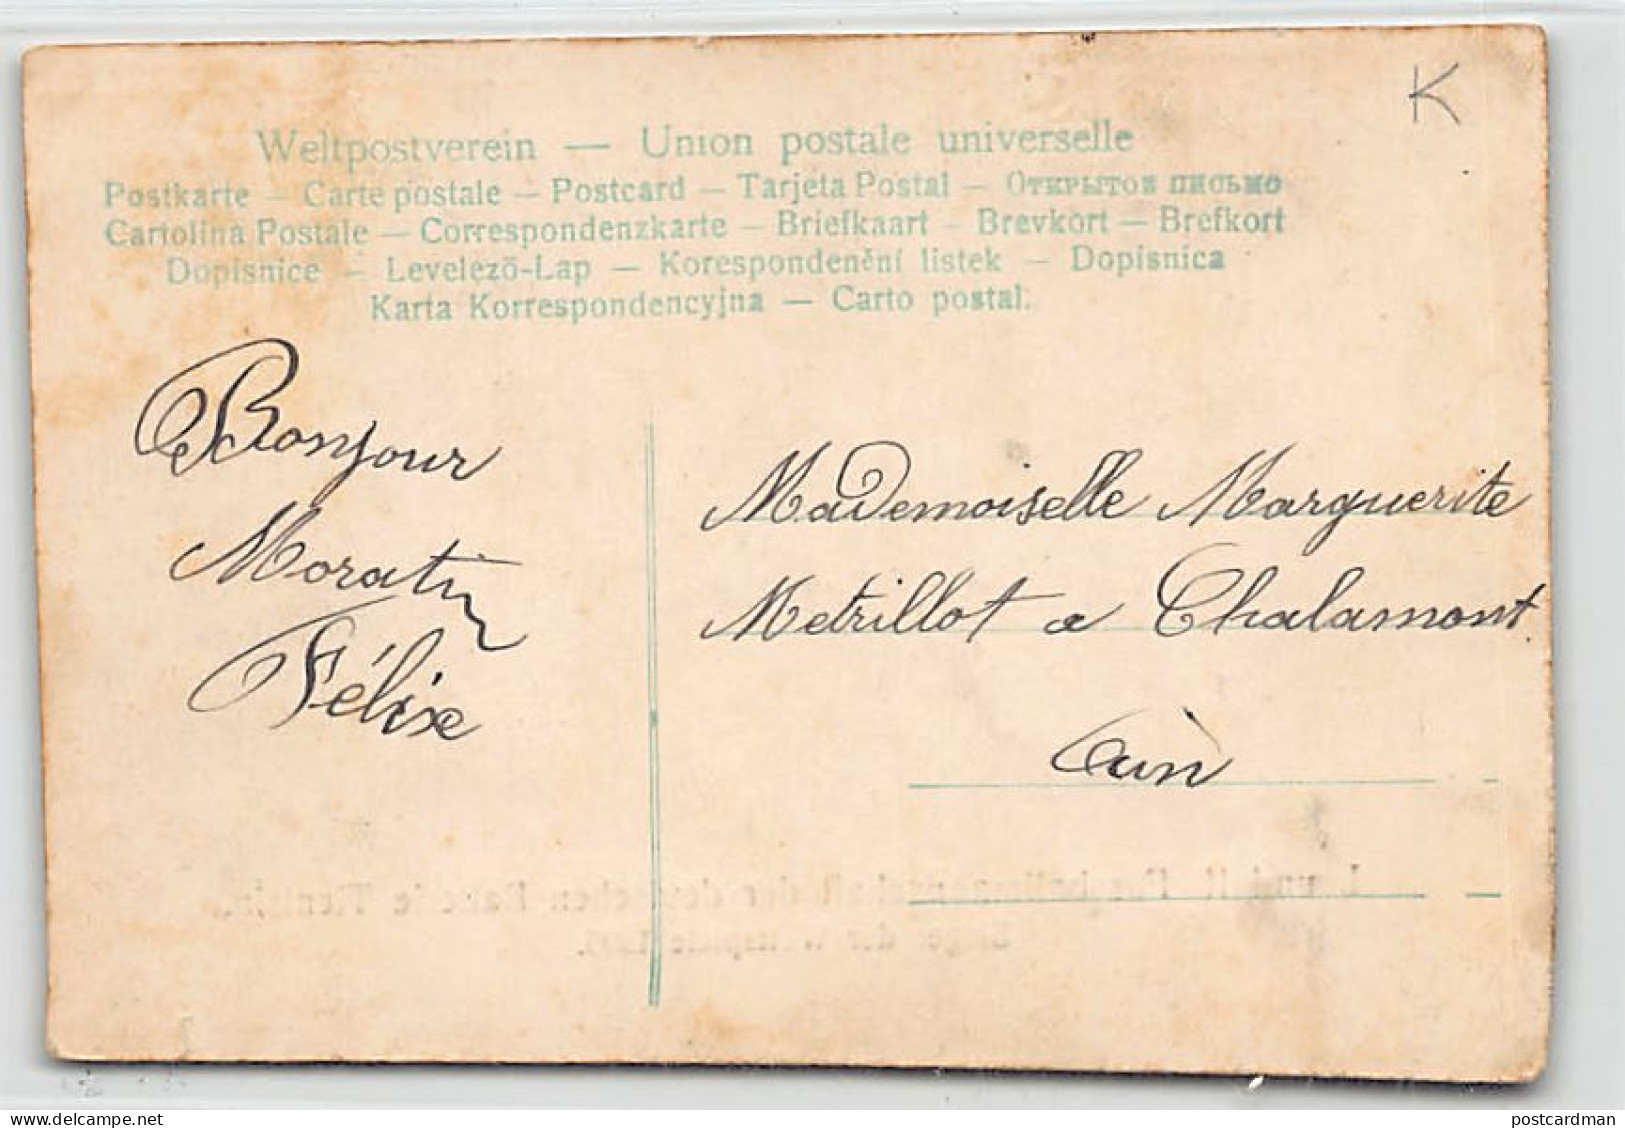 K
Weltpostverein — Union postale universelle
Postkarte — Carte postale — Postcard — Tarjeta Postal — Открытое письмо
Cartolina Postale — Correspondenzkarte — Briefkaart — Brevkort — Brefkort
Dopisnice — Levelezö-Lap — Korespondenění listek — Dopisnica
Karta Korrespondencyjna — Carto postal.
Bonjour
Moratin
Félix
Mademoiselle Marguerite
Metrillot a Chalamont.
Ain
postcardman